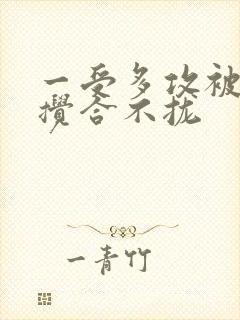 一受多攻被
攪合不拢
一青竹